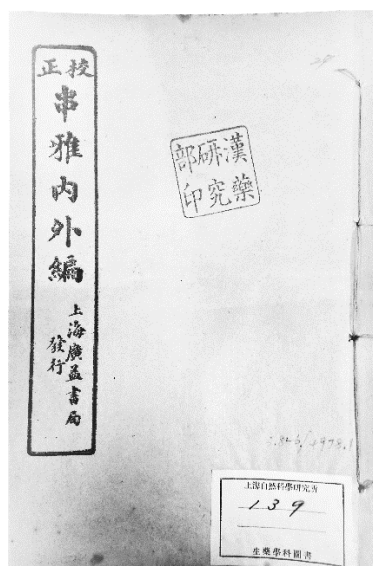 校正
串雅内外編
上海廣益書局
發行
漢藥
研究
部印
上海自然科學研究所
139
生藥學科圖書